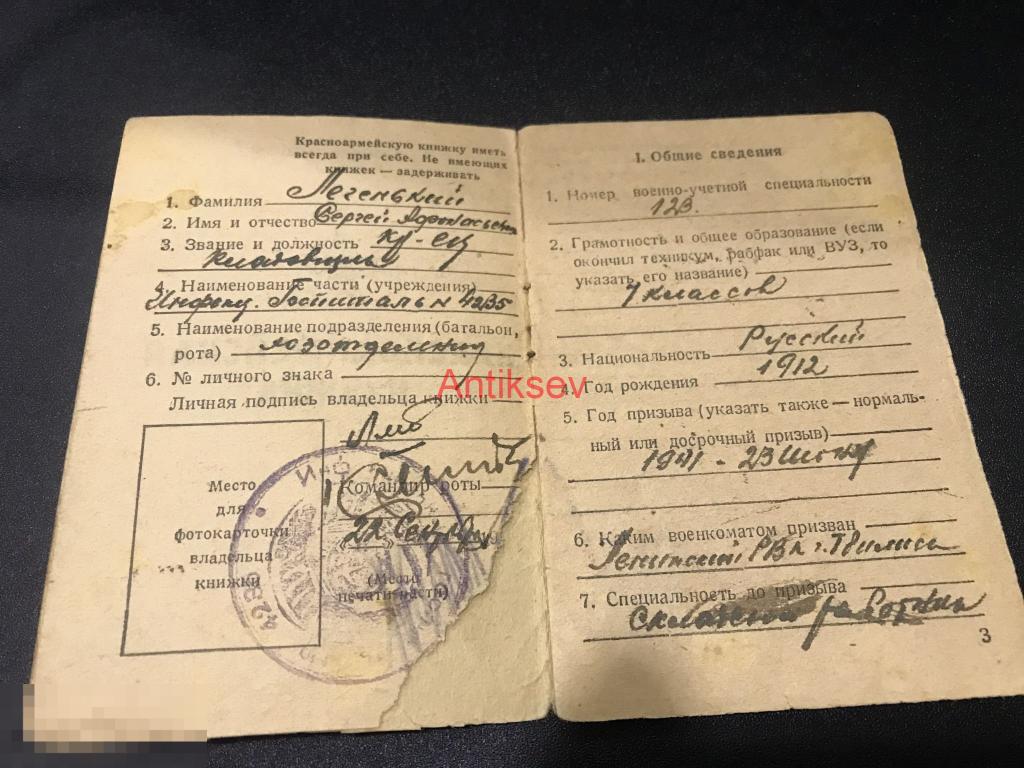 Красноармейскую книжку иметь
всегда при себе. Не имеющих
книжек — задерживать
1. Фамилия Легенький
2. Имя и отчество Сергей Афанасьевич
3. Звание и должность кр-ец
кладовщик
4. Наименование части (учреждения)
Инфекц. Госпиталь N 4235
5. Наименование подразделения (батальон,
рота) хозотделение
6. № личного знака
Личная подпись владельца книжки
Место
для
фотокарточки
владельца
книжки
Командир роты
22 Сентября
(Место
печати части)
1. Общие сведения
1. Номер военно-учетной специальности
123
2. Грамотность и общее образование (если
окончил техникум, рабфак или ВУЗ, то
указать его название)
7 классов
3. Национальность Русский
4. Год рождения 1912
5. Год призыва (указать также — нормаль-
ный или досрочный призыв)
1941 - 23 Июня
6. Каким военкоматом призван
РВК г. Тбилиси
7. Специальность до призыва
складской работник
3
Antiksev